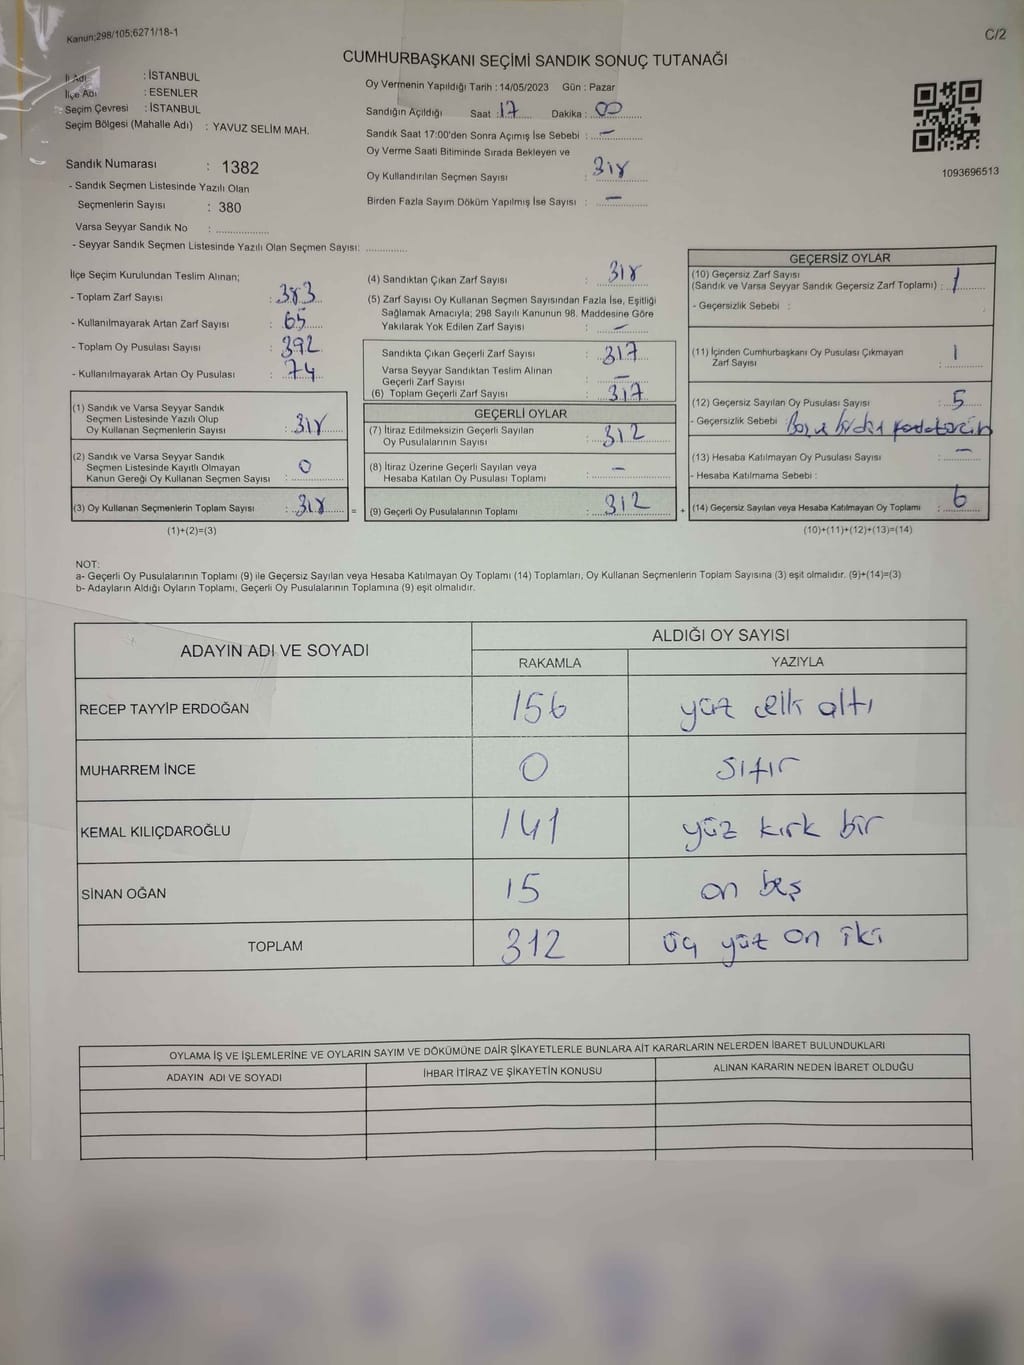 Kanun;298/105;6271/18-1
C/2
CUMHURBAŞKANI SEÇİMİ SANDIK SONUÇ TUTANAĞI
İl Adı : İSTANBUL
İlçe Adı : ESENLER
Seçim Çevresi : İSTANBUL
Seçim Bölgesi (Mahalle Adı) : YAVUZ SELİM MAH.
Sandık Numarası : 1382
- Sandık Seçmen Listesinde Yazılı Olan
Seçmenlerin Sayısı : 380
Varsa Seyyar Sandık No :
- Seyyar Sandık Seçmen Listesinde Yazılı Olan Seçmen Sayısı:
Oy Vermenin Yapıldığı Tarih : 14/05/2023 Gün : Pazar
Sandığın Açıldığı Saat : 17 Dakika : 00
Sandık Saat 17:00'den Sonra Açımış İse Sebebi : —
Oy Verme Saati Bitiminde Sırada Bekleyen ve
Oy Kullandırılan Seçmen Sayısı : 318
Birden Fazla Sayım Döküm Yapılmış İse Sayısı : —
1093696513
İlçe Seçim Kurulundan Teslim Alınan;
- Toplam Zarf Sayısı : 383
- Kullanılmayarak Artan Zarf Sayısı : 65
- Toplam Oy Pusulası Sayısı : 392
- Kullanılmayarak Artan Oy Pusulası : 74
(1) Sandık ve Varsa Seyyar Sandık
Seçmen Listesinde Yazılı Olup
Oy Kullanan Seçmenlerin Sayısı : 318
(2) Sandık ve Varsa Seyyar Sandık
Seçmen Listesinde Kayıtlı Olmayan
Kanun Gereği Oy Kullanan Seçmen Sayısı : 0
(3) Oy Kullanan Seçmenlerin Toplam Sayısı : 318 =
(1)+(2)=(3)
(4) Sandıktan Çıkan Zarf Sayısı : 318
(5) Zarf Sayısı Oy Kullanan Seçmen Sayısından Fazla İse, Eşitliği
Sağlamak Amacıyla; 298 Sayılı Kanunun 98. Maddesine Göre
Yakılarak Yok Edilen Zarf Sayısı : —
Sandıkta Çıkan Geçerli Zarf Sayısı : 317
Varsa Seyyar Sandıktan Teslim Alınan
Geçerli Zarf Sayısı : —
(6) Toplam Geçerli Zarf Sayısı : 317
GEÇERLİ OYLAR
(7) İtiraz Edilmeksizin Geçerli Sayılan
Oy Pusulalarının Sayısı : 312
(8) İtiraz Üzerine Geçerli Sayılan veya
Hesaba Katılan Oy Pusulası Toplamı : —
(9) Geçerli Oy Pusulalarının Toplamı : 312 +
GEÇERSİZ OYLAR
(10) Geçersiz Zarf Sayısı
(Sandık ve Varsa Seyyar Sandık Geçersiz Zarf Toplamı) : 1
- Geçersizlik Sebebi :
(11) İçinden Cumhurbaşkanı Oy Pusulası Çıkmayan
Zarf Sayısı 1
(12) Geçersiz Sayılan Oy Pusulası Sayısı : 5
- Geçersizlik Sebebi
(13) Hesaba Katılmayan Oy Pusulası Sayısı : —
- Hesaba Katılmama Sebebi :
(14) Geçersiz Sayılan veya Hesaba Katılmayan Oy Toplamı : 6
(10)+(11)+(12)+(13)=(14)
NOT:
a- Geçerli Oy Pusulalarının Toplamı (9) ile Geçersiz Sayılan veya Hesaba Katılmayan Oy Toplamı (14) Toplamları, Oy Kullanan Seçmenlerin Toplam Sayısına (3) eşit olmalıdır. (9)+(14)=(3)
b- Adayların Aldığı Oyların Toplamı, Geçerli Oy Pusulalarının Toplamına (9) eşit olmalıdır.
ADAYIN ADI VE SOYADI
ALDIĞI OY SAYISI
RAKAMLA YAZIYLA
RECEP TAYYİP ERDOĞAN 156 yüz elli altı
MUHARREM İNCE 0 sıfır
KEMAL KILIÇDAROĞLU 141 yüz kırk bir
SİNAN OĞAN 15 on beş
TOPLAM 312 üç yüz on iki
OYLAMA İŞ VE İŞLEMLERİNE VE OYLARIN SAYIM VE DÖKÜMÜNE DAİR ŞİKAYETLERLE BUNLARA AİT KARARLARIN NELERDEN İBARET BULUNDUKLARI
ADAYIN ADI VE SOYADI İHBAR İTİRAZ VE ŞİKAYETİN KONUSU ALINAN KARARIN NEDEN İBARET OLDUĞU